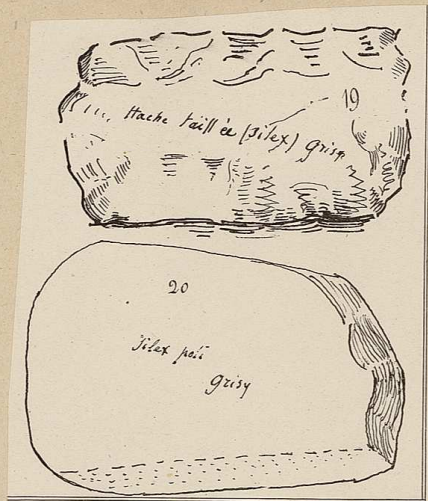 19
Hache taillée (Silex) Grisy
20
Silex poli
Grisy